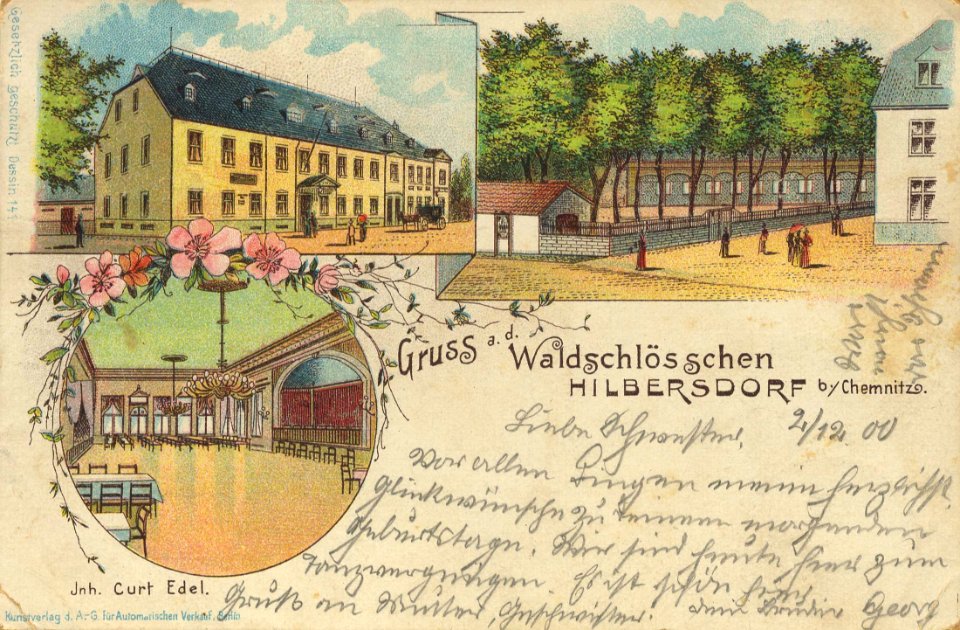 Gesetzlich geschützt Dessin 141
Gruss a. d. Waldschlösschen
HILBERSDORF b/Chemnitz.
Liebe Schwester, 2/12 00
Vor allen Dingen meine herzlichst
Glückwünsche zu deinem morgenden
Geburtstage. Wir sind heute hier zum
Tanzvergnügen. Es ist schön hier.
Gruß an Mutter, Geschwister. dein Bruder Georg
Jnh. Curt Edel.
Kunstverlag d. A.-G. für Automatischen Verkauf, Berlin